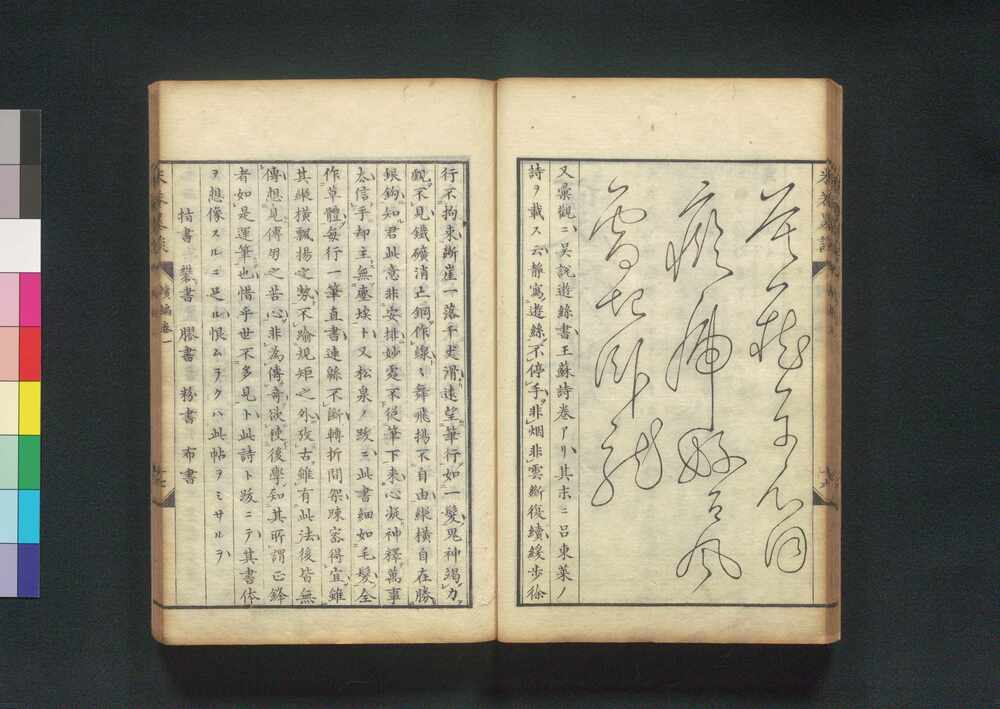 又彙觀ニ吳說遊絲書王蘇詩卷アリ其末ニ呂東萊ノ
詩ヲ載ス云靜寫遊絲不停手非烟非雲斷復續緩步徐
行不拘束斷崖一落千丈滑遠望筆行如一髮鬼神竭力
覷不見鐵礦消亡銅作線々舞飛揚不自由縱橫自在勝
銀鉤知君此意非安排妙處不從筆下來心凝神釋萬事
忘信手却主無塵埃ト又松泉ノ跋ニ此書細如毛髮全
作草體每行一筆直書連緜不斷轉折間架踈密得宜雖
其縱橫飄揚之勢不踰規矩之外攷古雖有此法後皆無
傳想見傅朋之苦心非為傳奇欲使後學知其所謂正鋒
者如是運筆也惜乎世不多見ト此詩ト跋ニテ其書体
ヲ想像スルニ足ル恨ムラクハ此帖ヲミサルヲ
枯書 攀書 膠書 粉書 布書
續編卷一